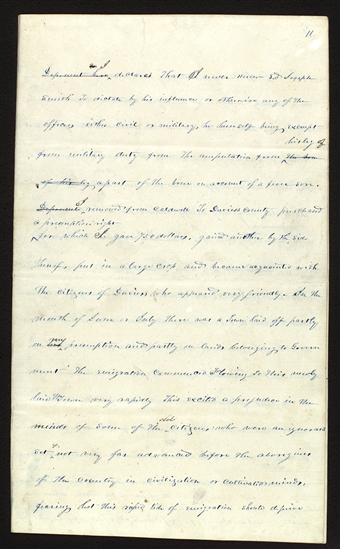 11
I
Deponent here declares that I never knew said Joseph
Smith to dictate by his influence or otherwise any of the
officers either civil or military, he himself being exempt
from military duty from the amputation from
his leg of
of his leg a part of the bone on account of a fever sore.
Deponent I removed from Caldwell to Daviess County, purchased
a preemption right
for which I gave 750 dollars, gained another by the side
thereof, put in a large crop and became acquainted with
the citizens of Daviess, who appeared very friendly. In the
Month of June or July there was a Town laid off partly
my
on preemption and partly on lands belonging to Govern
ment The emigration commenced flowing to this newly
laid Town very rapidly This excited a prejudice in the
old
minds of some of the Citizens who were an ignorant
set & not very far advanced before the aborigines
of the Country in civilization or cultivated minds,
fearing, lest this rapid tide of emigration should deprive